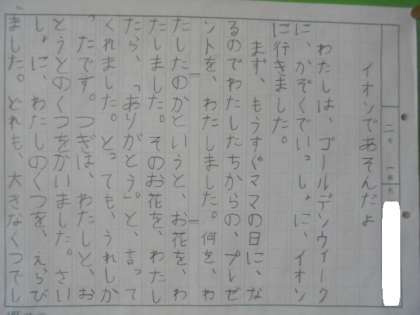 イオンであそんだよ
わたしは、ゴールデンウィーク
に、かぞくでいっしょに、イオン
に行きました。
まず、もうすぐママの日に、な
るのでわたしたちからの、プレゼ
ントを、わたしました。何を、わ
たしたのかというと、お花を、わ
たしました。そのお花を、わたし
たら、「ありがとう。」と、言って
くれました。とっても、うれしか
ったです。つぎは、わたしと、お
とうとのくつをかいました。さい
しょに、わたしのくつを、えらび
ました。どれも、大きなくつでし